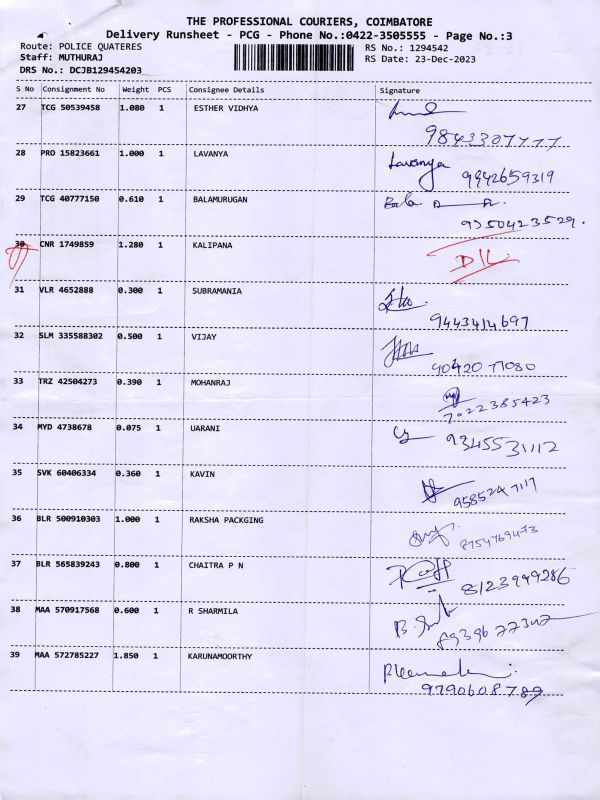 THE PROFESSIONAL COURIERS, COIMBATORE
Delivery Runsheet - PCG - Phone No.:0422-3505555 - Page No.:3
Route: POLICE QUATERES RS No.: 1294542
Staff: MUTHURAJ RS Date: 23-Dec-2023
DRS No.: DCJB129454203
S No Consignment No Weight PCS Consignee Details Signature
27 TCG 50539458 1.080 1 ESTHER VIDHYA
28 PRO 15823661 1.000 1 LAVANYA Lavanya
9942659319
29 TCG 40777150 0.610 1 BALAMURUGAN Bala
9350423529.
30 CNR 1749859 1.280 1 KALIPANA D/L
31 VLR 4652888 0.300 1 SUBRAMANIA
9443414697
32 SLM 335588302 0.500 1 VIJAY
90420 77080
33 TRZ 42504273 0.390 1 MOHANRAJ
7022385423
34 MYD 4738678 0.075 1 UARANI 9345531112
35 SVK 60406334 0.360 1 KAVIN
9585247117
36 BLR 500910303 1.000 1 RAKSHA PACKGING
8754769473
37 BLR 565839243 0.800 1 CHAITRA P N
8123949286
38 MAA 570917568 0.600 1 R SHARMILA
39 MAA 572785227 1.850 1 KARUNAMOORTHY
9790608789